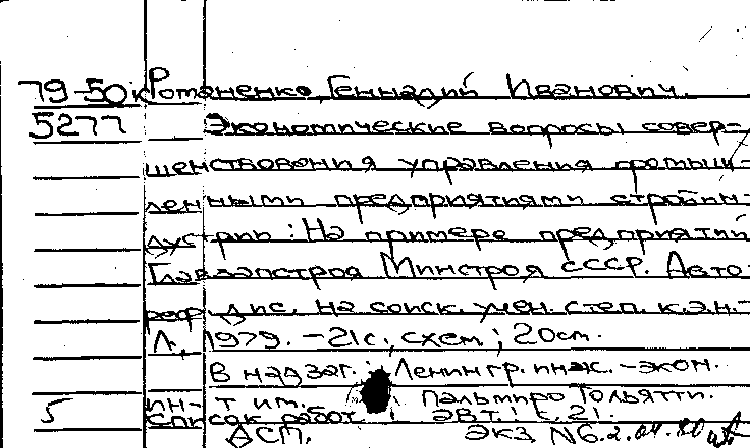 79-50к Романенко, Геннадий Иванович.
5277 Экономические вопросы совер-
шенствования управления промыш-
ленными предприятиями стройин-
дустрии: На примере предприятий
Главзапстроя Минстроя СССР. Авто-
реф. дис. на соиск. учен. степ. к.э.н.-
Л., 1979. - 21 с., схем; 20см.
В надзаг.: Ленингр. инж.-экон.
5 ин-т им. Пальмиро Тольятти.
Список работ авт.: с. 21.
ДСП. Экз. №6.